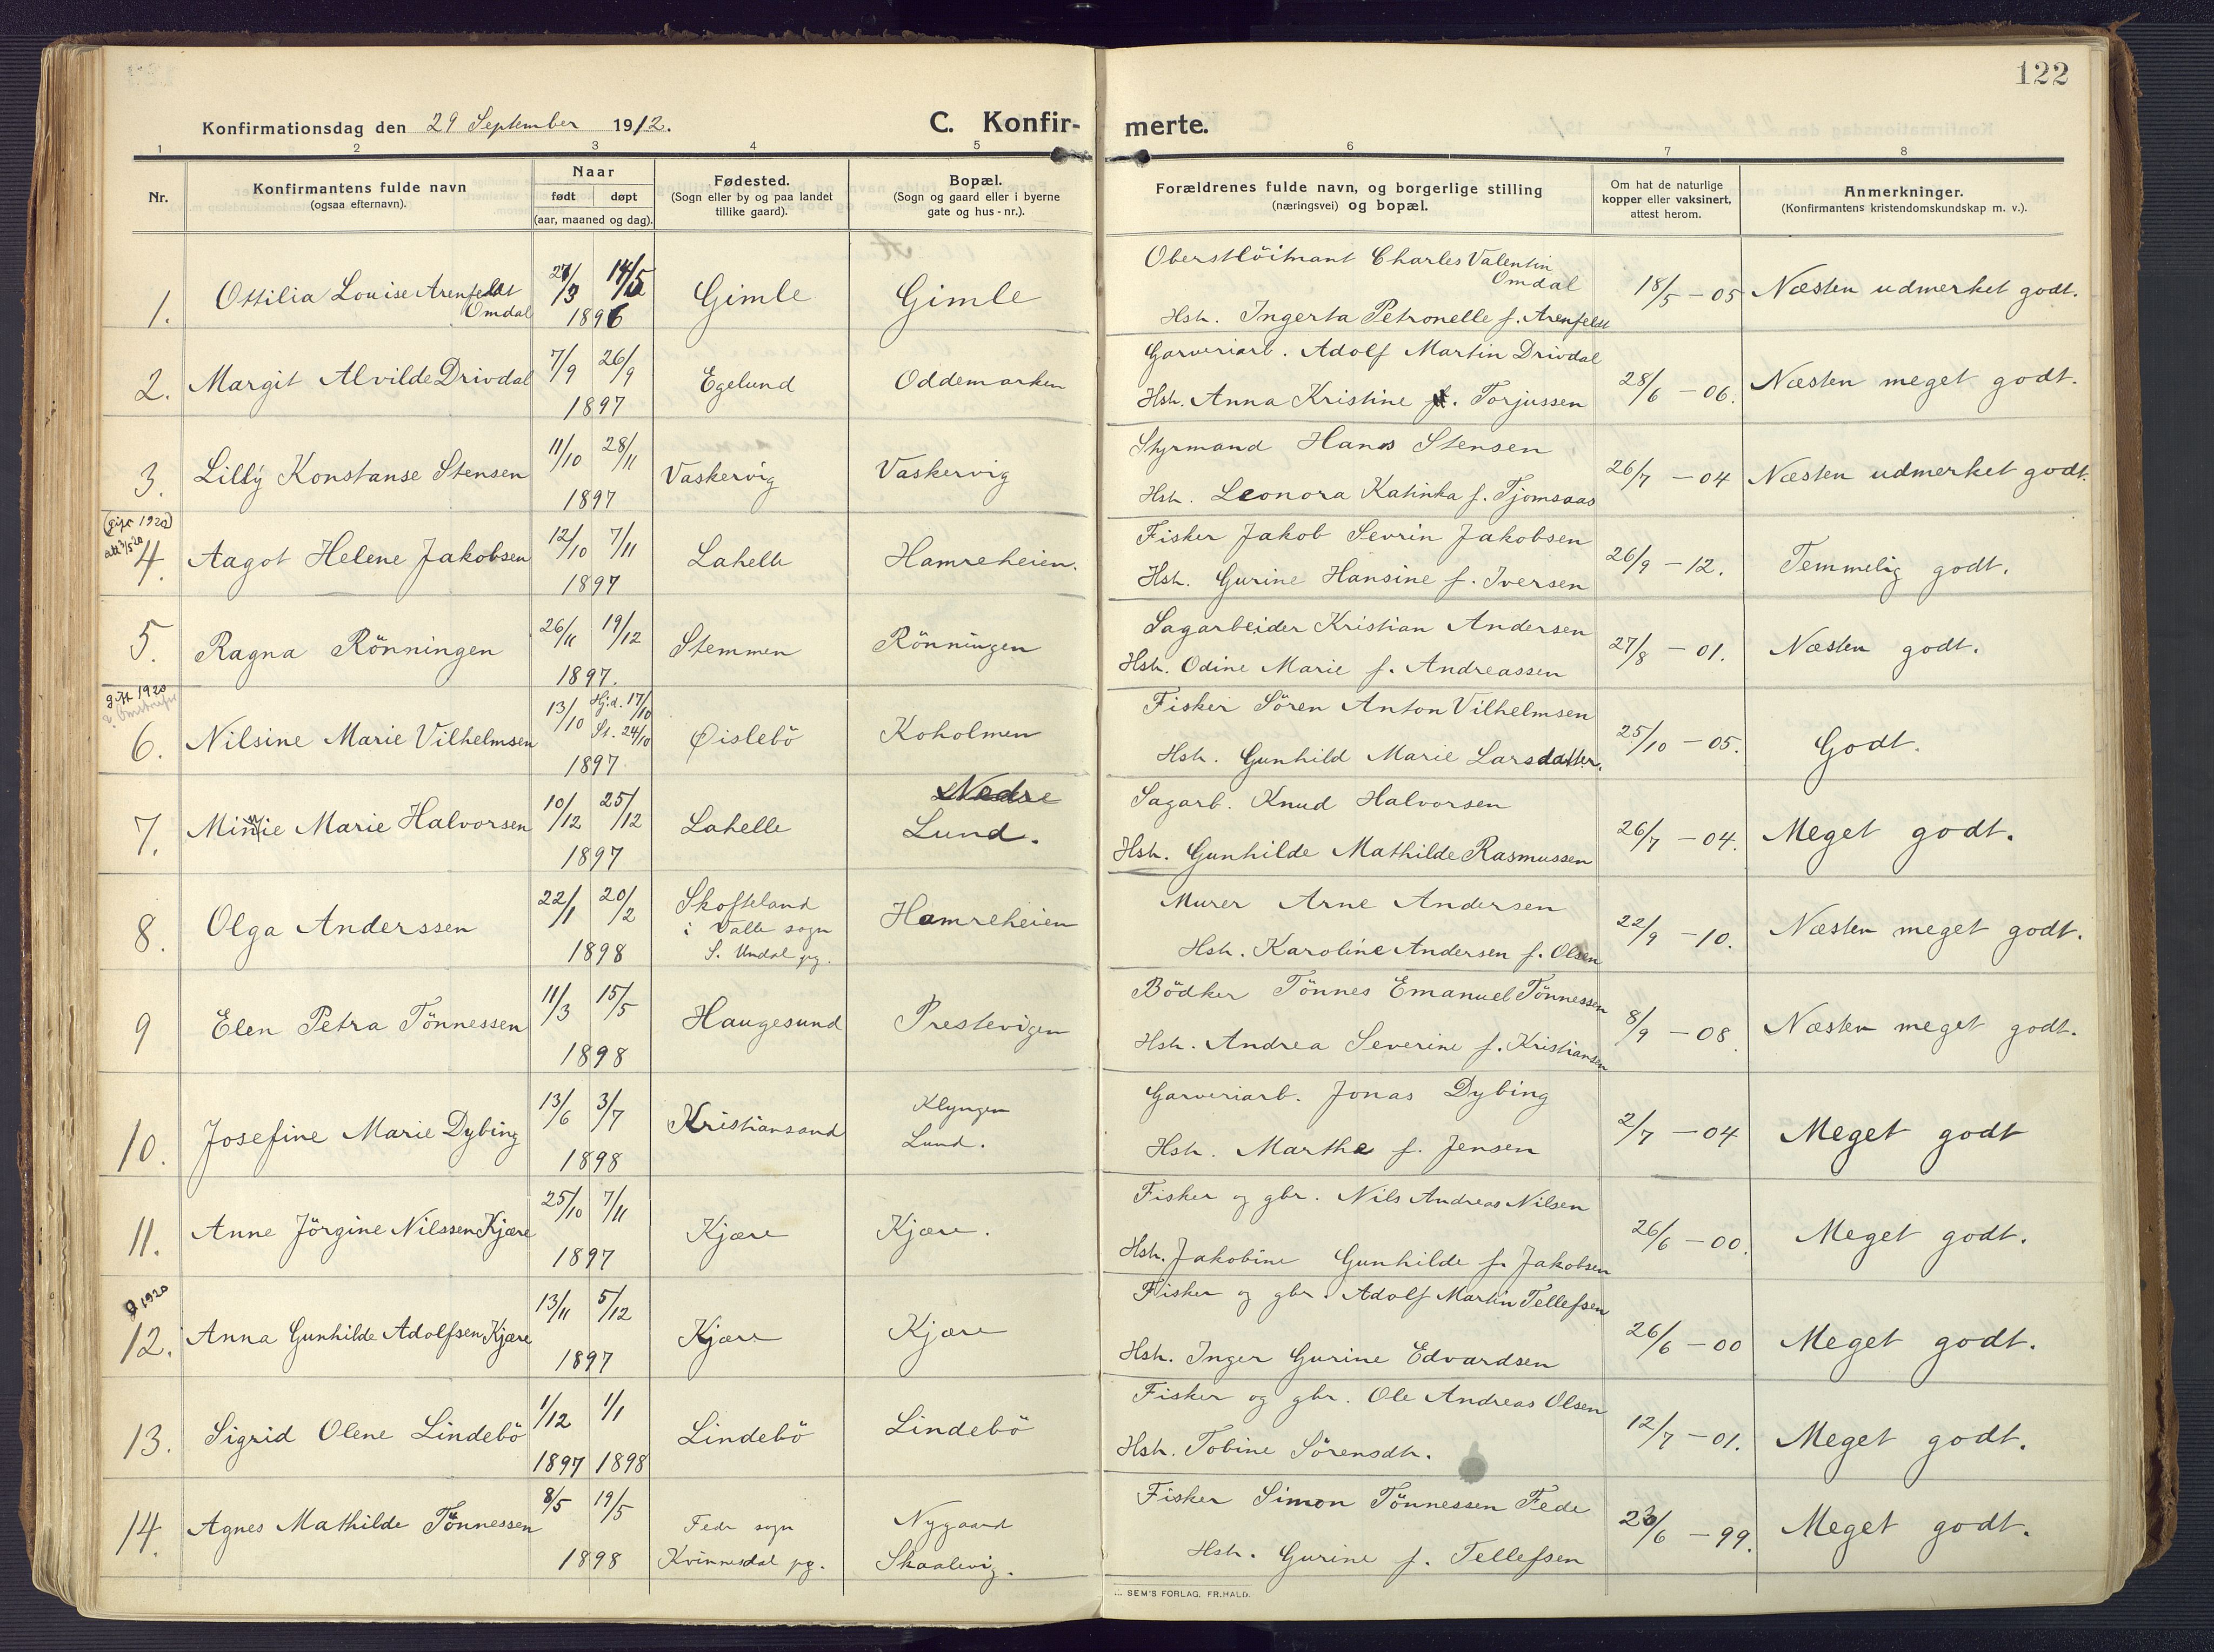 122
Konfirmationsdag den 29 September 1912.
C. Konfir-merte.
1 2 3 4 5 6 7 8
Nr.
Konfirmantens fulde navn
(ogsaa efternavn).
Naar
født døpt
(aar, maaned og dag).
Fødested.
(Sogn eller by og paa landet
tillike gaard).
Bopæl.
(Sogn og gaard eller i byerne
gate og hus-nr.).
Forældrenes fulde navn, og borgerlige stilling
(næringsvei) og bopæl.
Om hat de naturlige
kopper eller vaksinert,
attest herom.
Anmerkninger.
(Konfirmantens kristendomskundskap m. v.).
1. Ottilia Louise Arenfeldt
Omdal
27/3 14/5
1896
Gimle
Gimle
Oberstløitnant Charles Valentin
Omdal
Hstr. Ingerta Petronelle f. Arenfeldt
18/5 - 05
Næsten udmerket godt.
2. Margit Alvilde Drivdal
7/9 26/9
1897
Egelund
Oddemarken
Garveriarb. Adolf Martin Drivdal
Hstr. Anna Kristine f. Torjussen
28/6 - 06.
Næsten meget godt.
3. Lilly Konstanse Stensen
11/10 28/11
1897
Vaskervig
Vaskervig
Styrmand Hans Stensen
Hstr. Leonora Katinka f. Tjomsaas
26/7 - 04
Næsten udmerket godt.
(gift 1920)
att 3/5 20
4. Aagot Helene Jakobsen
12/10 7/11
1897
Lahelle
Hamreheien.
Fisker Jakob Sevrin Jakobsen
Hstr. Gurine Hansine f. Iversen
26/9 - 12.
Temmelig godt.
5. Ragna Rönningen
26/11 19/12
1897.
Stemmen
Rönningen
Sagarbeider Kristian Andersen
Hstr. Odine Marie f. Andreassen
27/8 - 01.
Næsten godt.
gift 1920
6. Nilsine Marie Vilhelmsen
13/10 Hj.d. 17/10
St. 24/10
1897
Øislebö
Koholmen
Fisker Sören Anton Vilhelmsen
Hstr. Gunhild Marie Larsdatter.
25/10 - 05.
Godt.
7. Minnie Marie Halvorsen
10/12 25/12
1897
Lahelle
Nedre
Lund.
Sagarb. Knud Halvorsen
Hstr. Gunhilde Mathilde Rasmussen
26/7 - 04.
Meget godt.
8. Olga Anderssen
22/1 20/2
1898
Skofteland
i Valle sogn
S. Undal pg.
Hamreheien
Murer Arne Andersen
Hstr. Karoline Andersen f. Olsen
22/9 - 10.
Næsten meget godt.
9 Elen Petra Tönnessen
11/3 15/5
1898
Haugesund
Prestevigen
Bödker Tönnes Emanuel Tönnessen
Hstr. Andrea Severine f. Kristiansen
8/9 - 08.
Næsten meget godt.
10. Josefine Marie Dybing
13/6 3/7
1898
Kristiansand
Klyngen
Lund.
Garveriarb. Jonas Dybing
Hstr. Marthe f. Jensen
2/7 - 04
Meget godt
11. Anne Jörgine Nilssen Kjære
25/10 7/11
1897
Kjære
Kjære.
Fisker og gbr. Nils Andreas Nilsen
Hstr. Jakobine Gunhilde f. Jakobsen
26/6 - 00.
Meget godt.
g 1920
12. Anna Gunhilde Adolfsen Kjære
13/11 5/12
1897
Kjære
Kjære
Fisker og gbr. Adolf Martin Tellefsen
Hstr. Inger Gurine Edvardsen
26/6 - 00
Meget godt.
13. Sigrid Olene Lindebö
1/12 1/1
1897 1898
Lindebö
Lindebö
Fisker og gbr. Ole Andreas Olsen
Hstr. Tobine Sörensdtr.
12/7 - 01.
Meget godt.
14. Agnes Mathilde Tönnessen
8/5 19/5
1898
Fede sogn
Kvinnesdal pg.
Nygaard
Skaalevig.
Fisker Simon Tönnessen Fede
Hstr. Gurine f. Tellefsen
23/6 - 99.
Meget godt.
SEM'S FORLAG, FR.HALD.